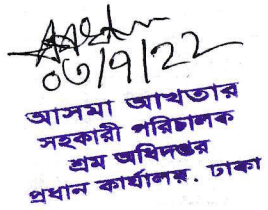 ০৬/9/22
আসমা আখতার
সহকারী পরিচালক
শ্রম অধিদপ্তর
প্রধান কার্যালয়. ঢাকা